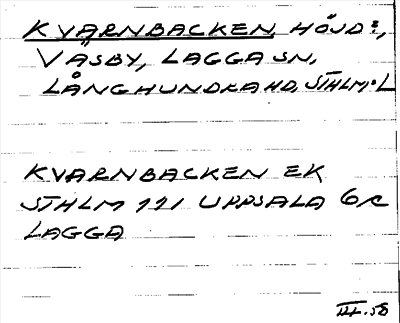 KVARNBACKEN, HÖJD:,
VÄSBY, LAGGA SN,
LÅNGHUNDRA HD, STHLM:L
KVARNBACKEN EK
STHLM 121 UPPSALA 6c
LAGGA
III.58